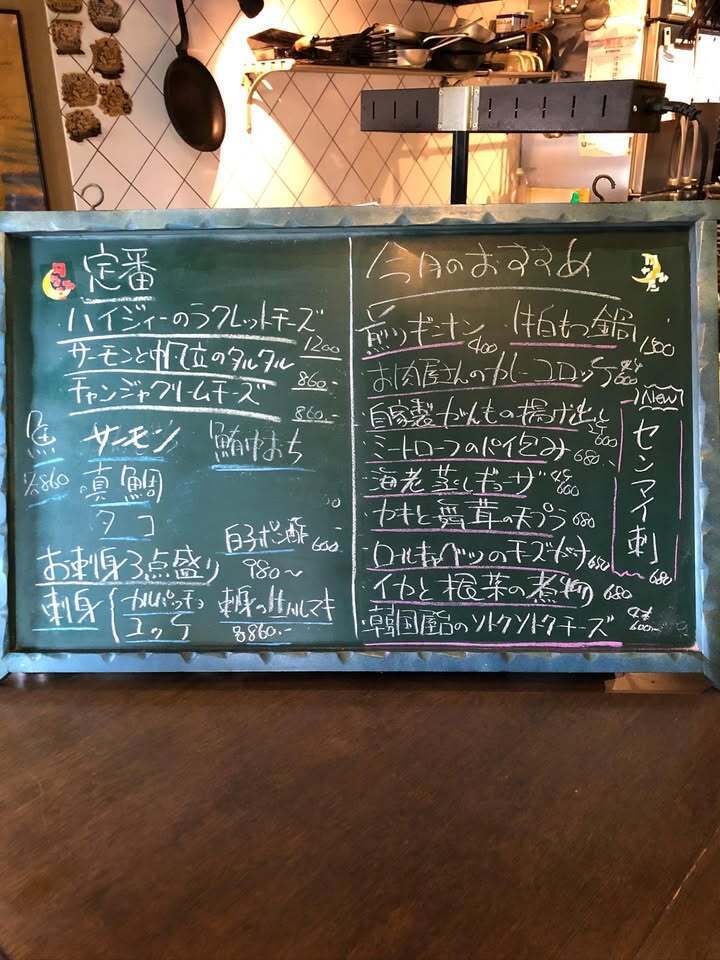 定番
ハイジィーのラクレットチーズ
1200
サーモンと帆立のタルタル
860-
チャンジャクリームチーズ
860-
魚 サーモン 鮪中おち
860
真鯛
タコ
白子ポン酢 600
お刺身3点盛り 980〜
刺身 カルパッチョ ユッケ
刺身の生ハルマキ
860-
今月のおすすめ
煎りギンナン 400
もつ鍋 1500
お肉屋さんのカレーコロッケ 600
自家製がんもの揚げ出し 600
ミートローフのパイ包み 680
海老蒸しギョーザ 600
カキと舞茸の天プラ 680
ロールキャベツのチーズ 680
イカと根菜の煮物 680
韓国屋台のソトクソトクチーズ 600-
New
センマイ刺
680